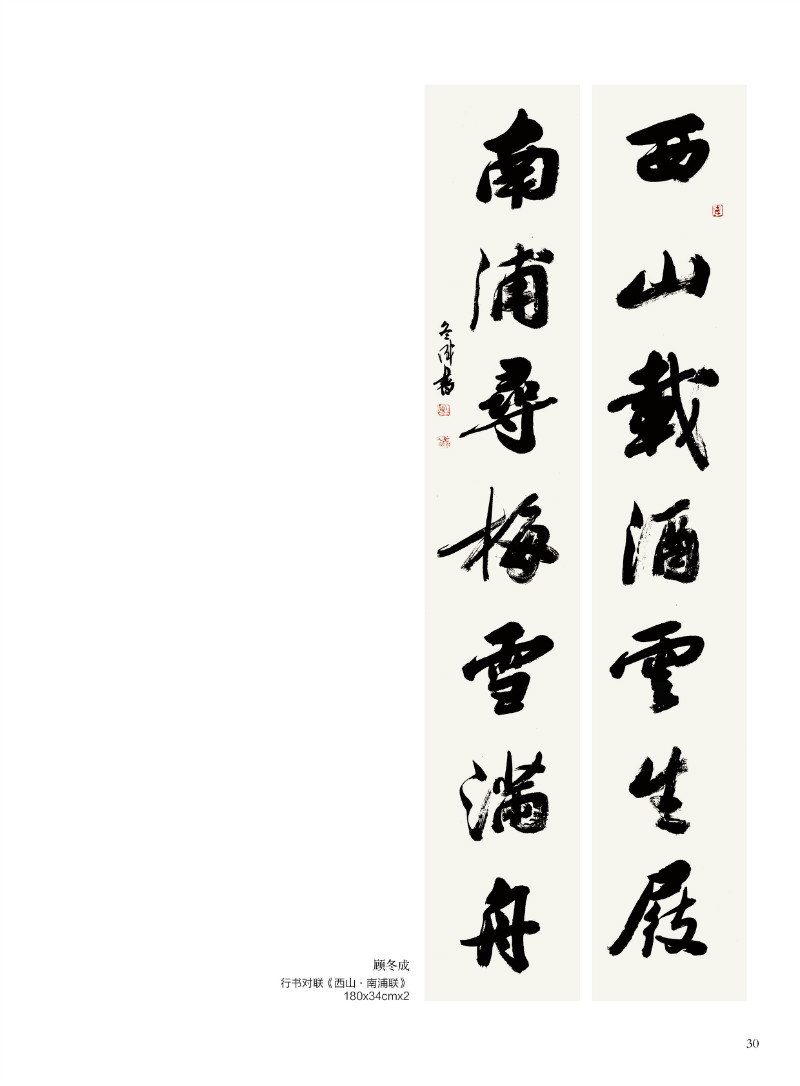 西山载酒雲生屐
南浦尋梅雪满舟
冬成书
顾冬成
行书对联《西山·南浦联》
180x34cmx2
30